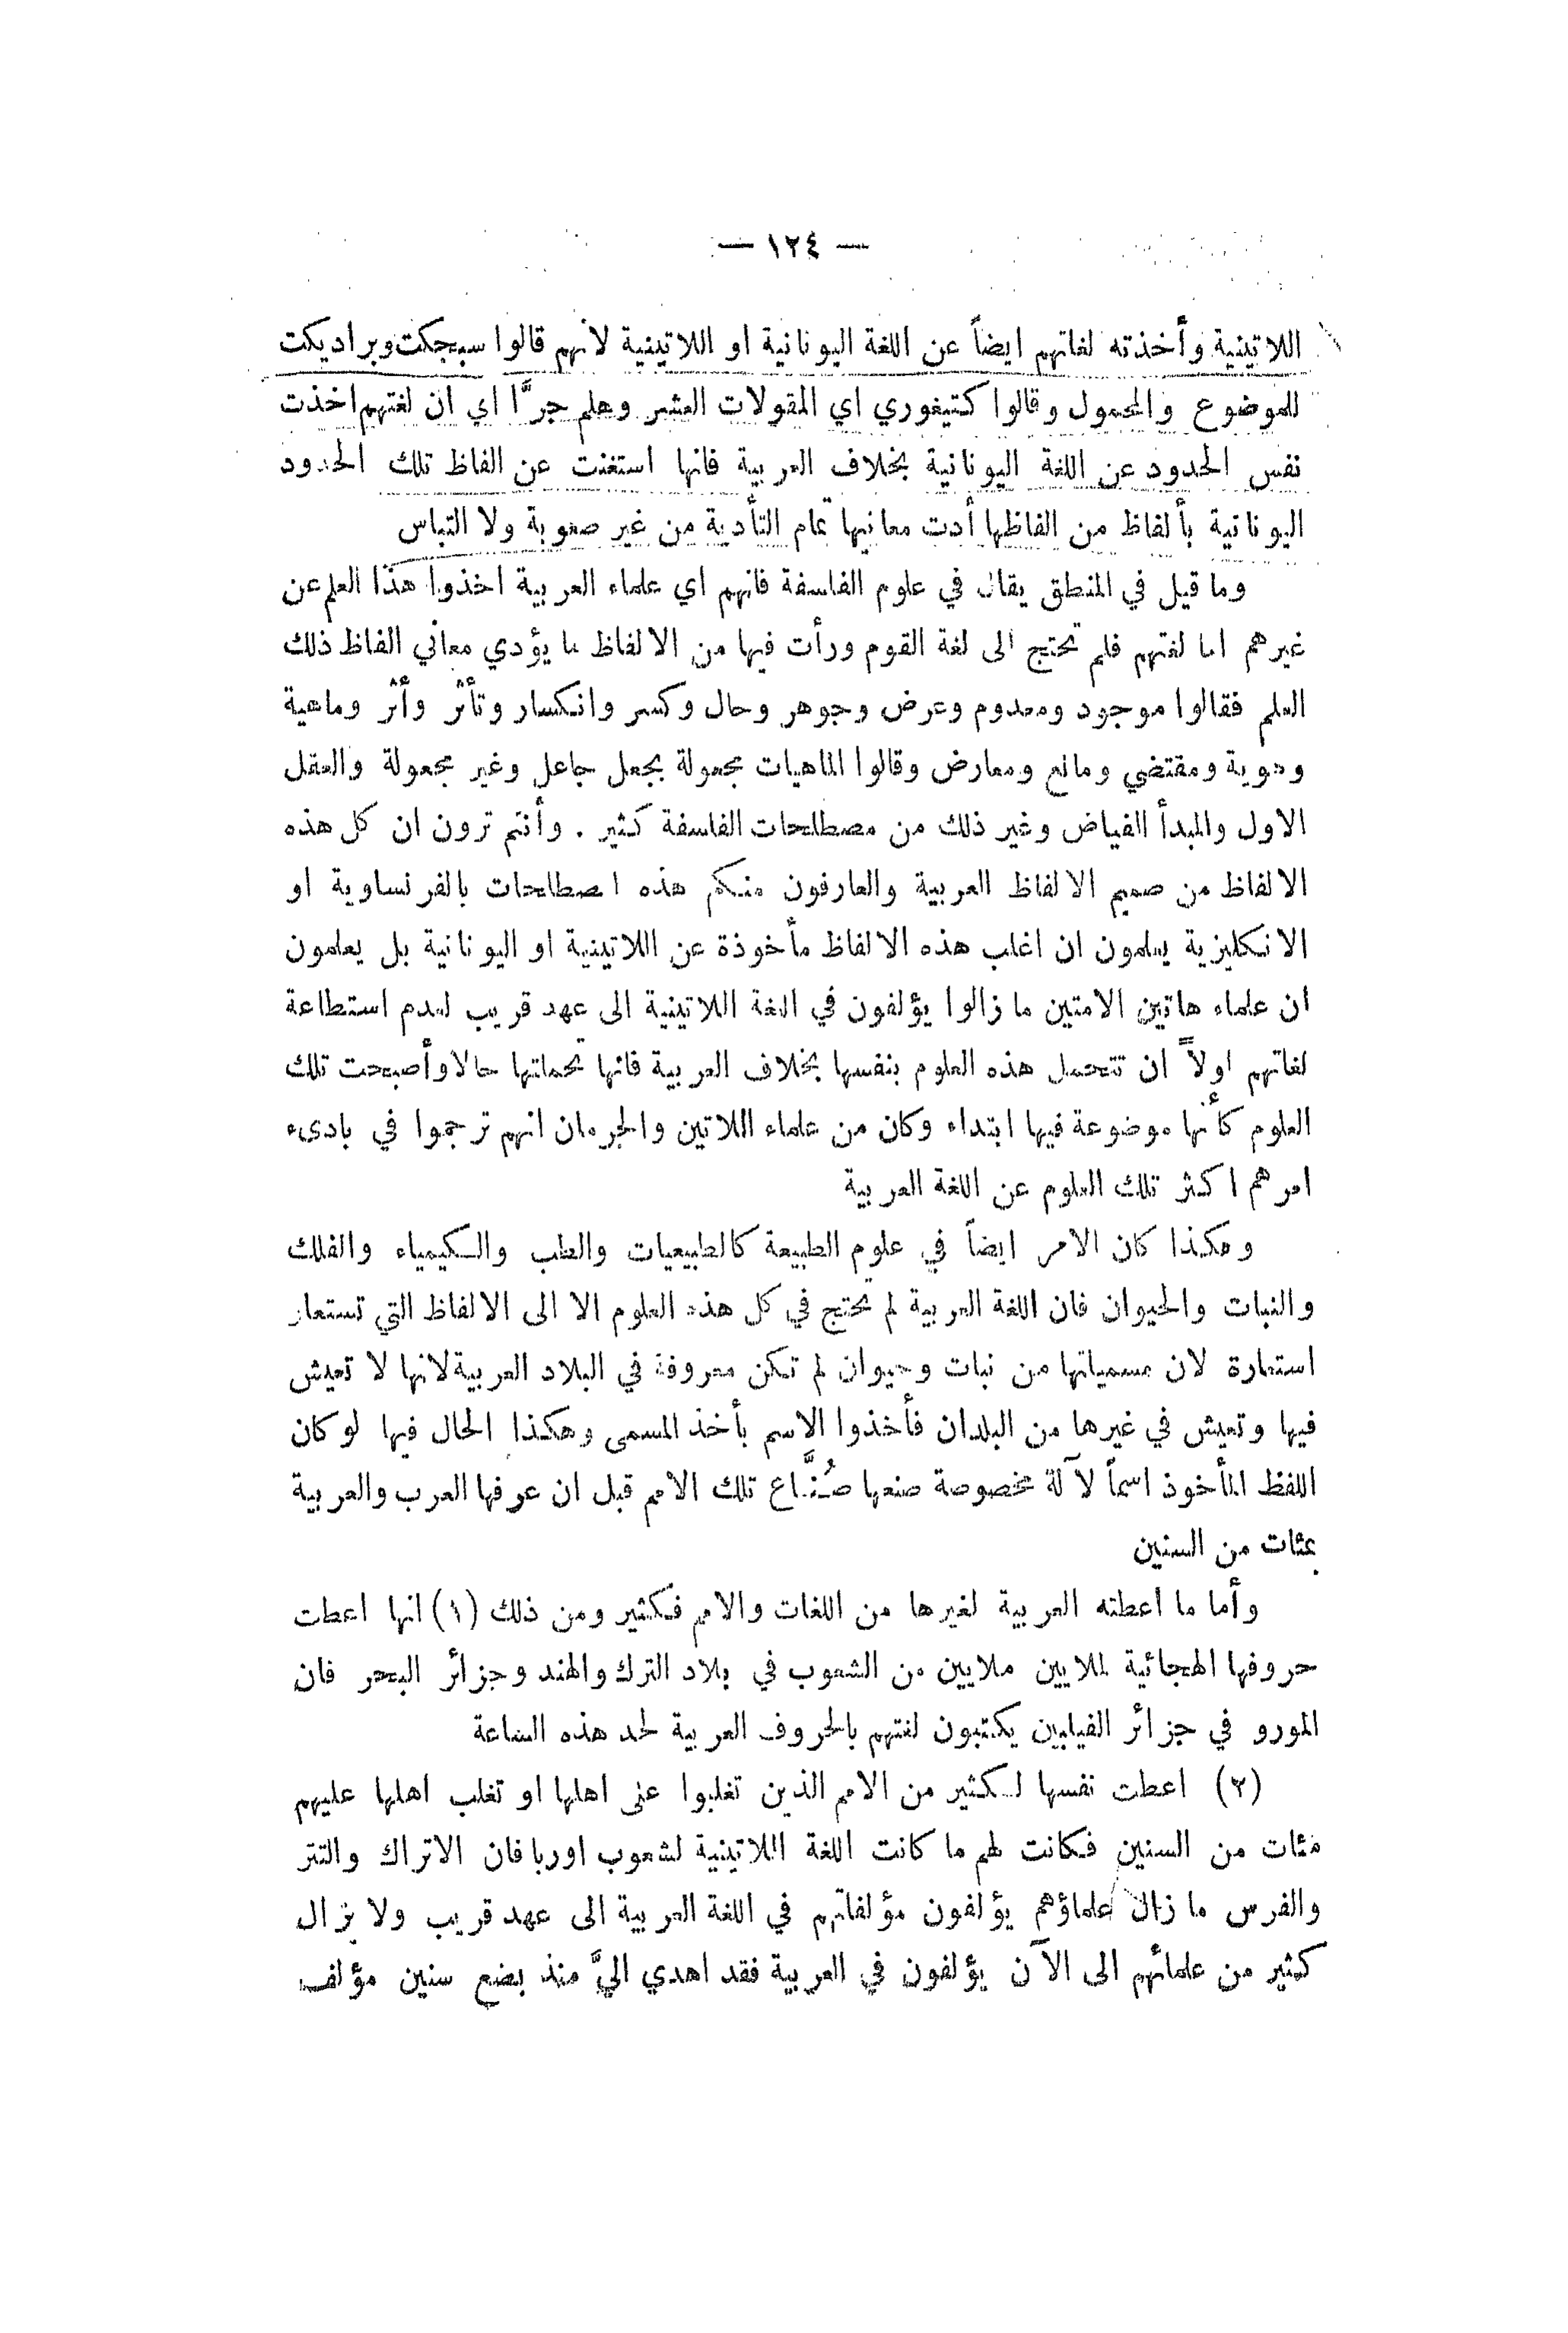 — ١٢٤ —
اللاتينية وأخذته لغاتهم ايضاً عن اللغة اليونانية او اللاتينية لانهم قالوا سبجكت وبراديكت
للموضوع والمحمول وقالوا كتيغوري اي المقولات العشر وهلم جرًّا اي ان لغتهم اخذت
نفس الحدود عن اللغة اليونانية بخلاف العربية فانها استغنت عن الفاظ تلك الحدود
اليونانية بألفاظ من الفاظها أدت معانيها تمام التأدية من غير صعوبة ولا التباس
وما قيل في المنطق يقال في علوم الفلسفة فانهم اي علماء العربية اخذوا هذا العلم عن
غيرهم اما لغتهم فلم تحتج الى لغة القوم ورأت فيها من الالفاظ ما يؤدي معاني الفاظ ذلك
العلم فقالوا موجود ومعدوم وعرض وجوهر وحال وكسر وانكسار وتأثر وأثر وماهية
وهوية ومقتضي ومانع ومعارض وقالوا الماهيات مجعولة بجعل جاعل وغير مجعولة والعقل
الاول والمبدأ الفياض وغير ذلك من مصطلحات الفلسفة كثير . وأنتم ترون ان كل هذه
الالفاظ من صميم الالفاظ العربية والعارفون منكم هذه اصطلاحات بالفرنساوية او
الانكليزية يعلمون ان اغلب هذه الالفاظ مأخوذة عن اللاتينية او اليونانية بل يعلمون
ان علماء هاتين الامتين ما زالوا يؤلفون في اللغة اللاتينية الى عهد قريب لعدم استطاعة
لغاتهم اولاً ان تتحمل هذه العلوم بنفسها بخلاف العربية فانها تحملتها حالا وأصبحت تلك
العلوم كأنها موضوعة فيها ابتداء وكان من علماء اللاتين والجرمان انهم ترجموا في بادىء
امرهم اكثر تلك العلوم عن اللغة العربية
وهكذا كان الامر ايضاً في علوم الطبيعة كالطبيعيات والطب والكيمياء والفلك
والنبات والحيوان فان اللغة العربية لم تحتج في كل هذه العلوم الا الى الالفاظ التي تستعار
استعارة لان مسمياتها من نبات وحيوان لم تكن معروفة في البلاد العربية لانها لا تعيش
فيها وتعيش في غيرها من البلدان فأخذوا الاسم بأخذ المسمى وهكذا الحال فيها لو كان
اللفظ المأخوذ اسماً لآلة مخصوصة صنعها صُنَّاع تلك الامم قبل ان عرفها العرب والعربية
بمئات من السنين
وأما ما اعطته العربية لغيرها من اللغات والامم فكثير ومن ذلك (١) انها اعطت
حروفها الهجائية لملايين ملايين من الشعوب في بلاد الترك والهند وجزائر البحر فان
المورو في جزائر الفيلبين يكتبون لغتهم بالحروف العربية لحد هذه الساعة
(٢) اعطت نفسها لكثير من الامم الذين تغلبوا على اهلها او تغلب اهلها عليهم
مئات من السنين فكانت لهم ما كانت اللغة اللاتينية لشعوب اوربا فان الاتراك والتتر
والفرس ما زال علماؤهم يؤلفون مؤلفاتهم في اللغة العربية الى عهد قريب ولا يزال
كثير من علمائهم الى الآن يؤلفون في العربية فقد اهدي اليَّ منذ بضع سنين مؤلف